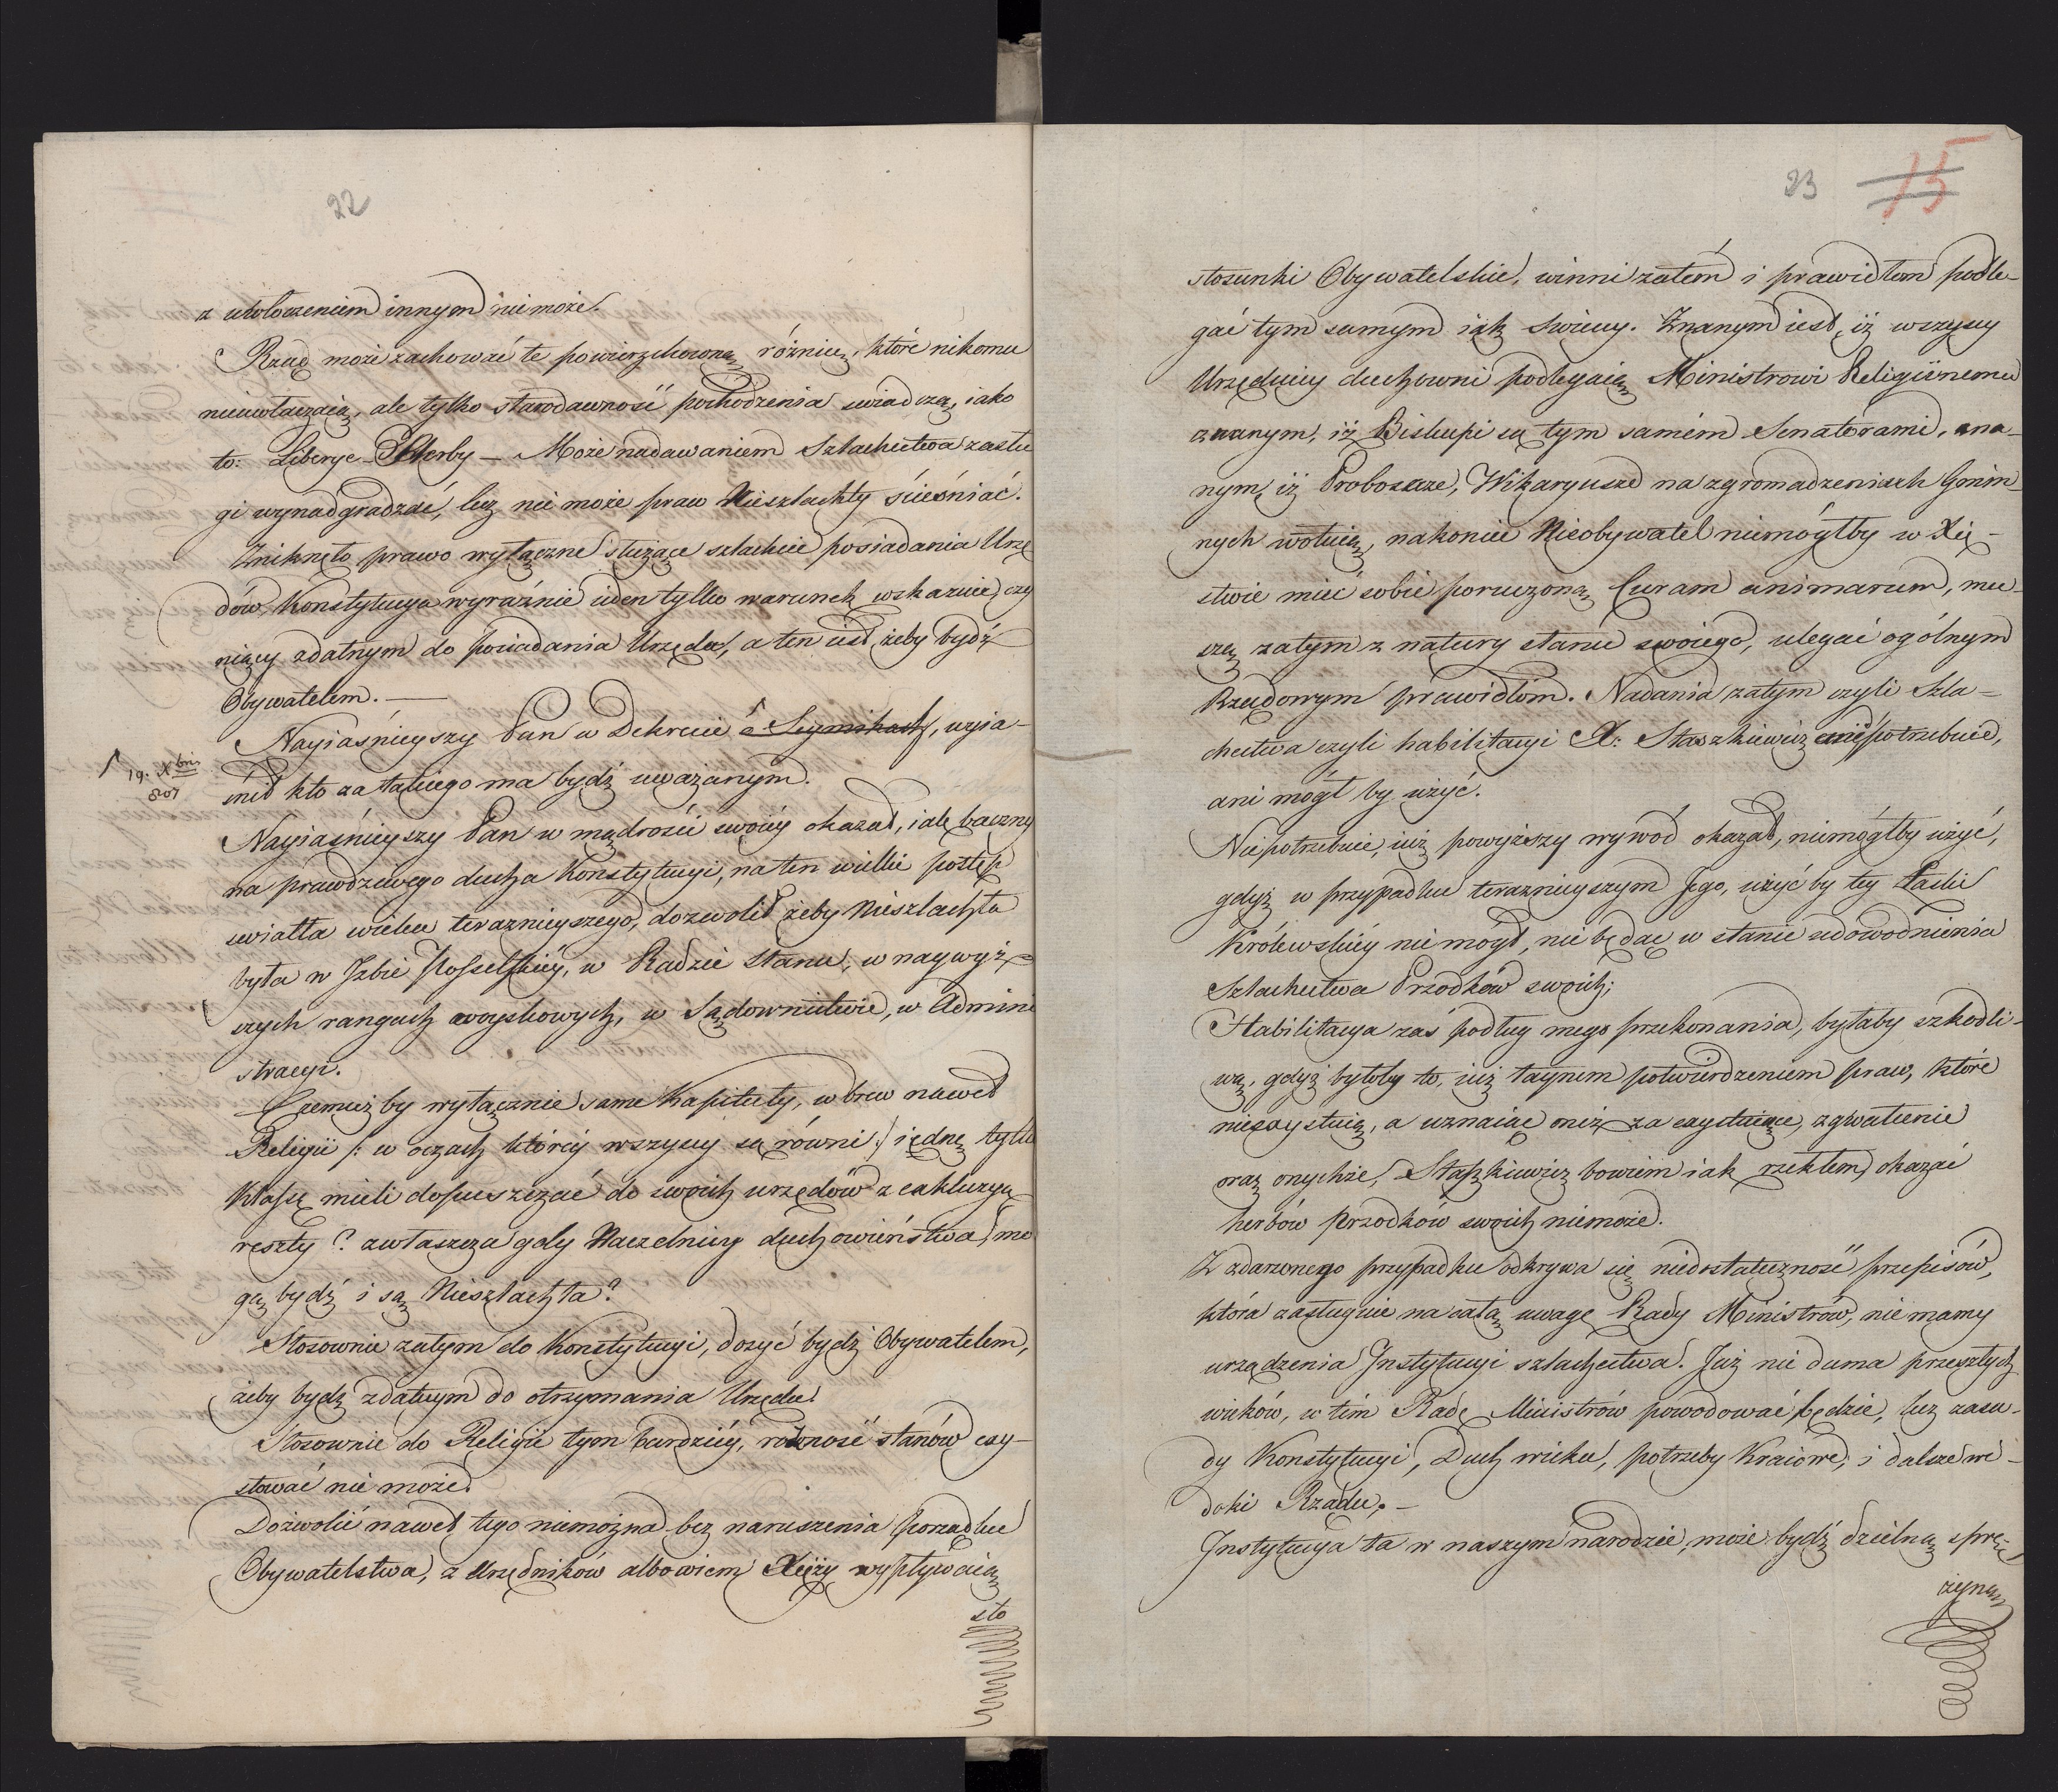 22
z uwłoczeniem innym nie może.
Rząd może zachować te powierzchowną różnicę, które nikomu
nieuwłaczaią, ale tylko starodawność pochodzenia świadczą, iako
to: Liberye Herby — Może nadawaniem Szlachectwa zasłu
gi wynadgradzać, lecz nie może praw Nieszlachty ścieśniać.
Zniknęło prawo wyłączne służące szlachcie posiadania Urzę
dów, Konstytucya wyraźnie ieden tylko warunek wskazuie czy
niący zdatnym do posiadania Urzędu, a ten iest, żeby bydź
Obywatelem. —
Nayiaśnieyszy Pan w Dekrecie o Seymikach, wyia-
19. Xbris
807
śnił kto za takiego ma bydź uważanym.
Nayiaśnieyszy Pan w mądrości swoiéy okazał, iak baczny
na prawdziwego ducha Konstytucyi, na ten wielki postęp
swiatła wieku teraznieyszego, dozwolił żeby Nieszlachta
była w Izbie Posselskiéy, w Radzie Stanu, w naywyż-
szych rangach woyskowych, w Sądownictwie, w Admini
stracyi.
Czemuż by wyłącznie same Kapituły, wbrew nawet
Religii /: w oczach któréy wszyscy są równi :/ iednę tylko
Klassę mieli dopuszczać do swoich urzędów z exkluzyą
reszty? zwłaszcza gdy Naczelnicy duchowieństwa mo
gą bydź i są Nieszlachta?
Stosownie zatym do Konstytucyi, dosyć bydź Obywatelem,
żeby bydź zdatnym do otrzymania Urzędu.
Stosownie do Religii tym bardziéy, rożność stanów exy-
stować nie może.
Dozwolić nawet tego niemożna bez naruszenia porządku
Obywatelstwa, z Urzędników albowiem Xięży wypływaią
sto
23 15
stosunki Obywatelskie, winni zatém i prawidłom podle-
gać tym samym iak Swieccy. Znanym iest, iż wszyscy
Urzędnicy duchowni podlegaią Ministrowi Religiinemu
znanym, iż Biskupi są tym samém Senatorami, zna-
nym, iż Proboszcze, Wikaryusze na zgromadzeniach Gmin-
nych wotuią, nakoniec Nieobywatel niemógłby w Xię-
stwie mieć sobie poruczoną Curam animarum, mu-
szą zatym z natury stanu swoiego, ulegać ogólnym
Rządowym prawidłóm. Nadania zatym czyli Szla-
chectwa czyli habilitacyi X: Staszkiewicz anipotrzebuie,
ani mógł by użyć.
Niepotrzebuie, iuż powyższy wywod okazał, niemógłby użyć,
gdyż w przypadku teraznieyszym Jego, użyć by tey Łaski
Królewskiéy nie mógł, nie będąc w stanie udowodnienia
Szlachectwa Przodków swoich;
Habilitacya zaś podług mego przekonania, byłaby szkodli-
wą, gdyż byłoby to, iuż taynem potwierdzeniem praw, które
nieexystuią, a uznaiąc oneż za exystuiące, zgwałcenie
oraz onychże, Staszkiewicz bowiem iak rzekłem, okazać
herbów przodków swoich niemoże.
Z zdarzonego przypadku odkrywa się niedostateczność przepisów,
która zasługuie na całą uwagę Rady Ministrów, nie mamy
urządzenia Instytucyi szlachectwa. Już nie duma przeszłych
wieków, w tém Radę Ministrów powodować będzie, lecz zasa-
dy Konstytucyi, Duch wieku, potrzeby Kraiowe, i dalsze wi-
doki Rządu. —
Instytucya ta w naszym narodzie, może bydź dzielną sprę-
żyną